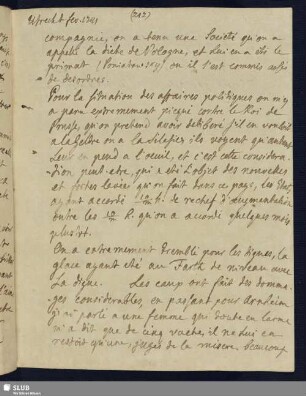 Utrecht fev. 1741 (212)
compagnie, on a tenu une Societé qu'on a
appelé la diete de Pologne, et lui en a été le
primat (Poniatowsky) ou il s'est commis aussi
de desordres.
Pour la situation des affaires politiques on m'y
a paru extremement piqué contre le Roi de
Prusse, qu'on pretend avoir deliberé s'il en vouloit
a la Geldre ou a la Silesie, ils voyent qu'autant
leur en pend a l'oeuil, et c'est cette considera-
tion, peut-etre, qui a été l'objet des nouvelles
et fortes levées qu'on fait dans ce païs, les Etats
ayant accordé de rechef d'augmentation
outre les qu'on a accordé quelques mois
plus tot.
On a extremement tremblé pour les digues, la
glace ayant eté au de niveau avec
la digue. Les eaux ont fait des domma-
ges considerables, en passant pour
j'ai parlé a une femme qui toute en larme
m'a dit que de cinq vaches, il ne lui en
restoit qu'une, jugez de la misere. beaucoup
SLUB